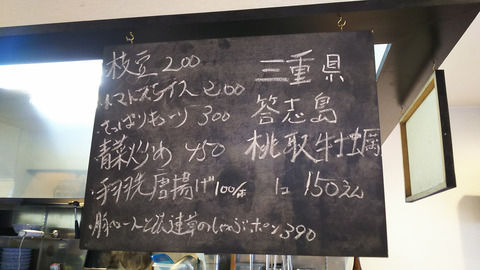 枝豆 200
・トマトスライス 200
・さっぱりキューリ 300
青菜炒め 450
・手羽先唐揚げ 100/本
・豚ロースと菠薐草のしゃぶポン 390
三重県
答志島
桃取牡蠣
1コ 150えん